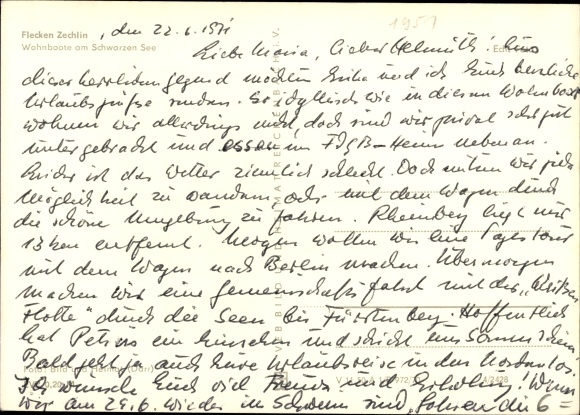 Flecken Zechlin, den 22.6.1971
Wohnboote am Schwarzen See
1957
Liebe Maria, lieber Helmuth! Aus
dieser herrlichen Gegend möchten Erika und ich Euch herzliche
Urlaubsgrüße senden. So idyllisch wie in diesen Wohnbooten
wohnen wir allerdings nicht, doch sind wir privat sehr gut
untergebracht und essen im FDGB-Heim nebenan.
Leider ist das Wetter ziemlich schlecht. Doch nutzen wir jede
Möglichkeit zu wandern, oder mit dem Wagen durch
die schöne Umgebung zu fahren. Rheinsberg liegt nur
13 km entfernt. Morgen wollen wir eine Tagestour
mit dem Wagen nach Berlin machen. Übermorgen
machen wir eine Gemeinschaftsfahrt mit der "Weißen
Flotte" durch die Seen bis Fürstenberg. Hoffentlich
hat Petrus ein Einsehen und schickt uns Sonnenschein.
Bald geht ja auch Eure Urlaubsreise in den
Ich wünsche Euch viel Freude und Erholung! Wenn
wir am 29.6. wieder in Schwerin sind, fahren die 6 =